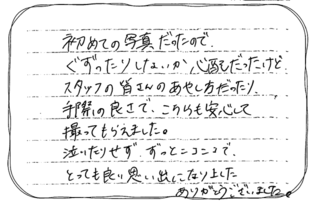 初めての写真だったので、
ぐずったりしないか心配だったけど
スタッフの皆さんのあやし方だったり
手際の良さで、こちらも安心して
撮ってもらえました。
泣いたりせず、ずっとニコニコで、
とっても良い思い出になりました
ありがとうございました。